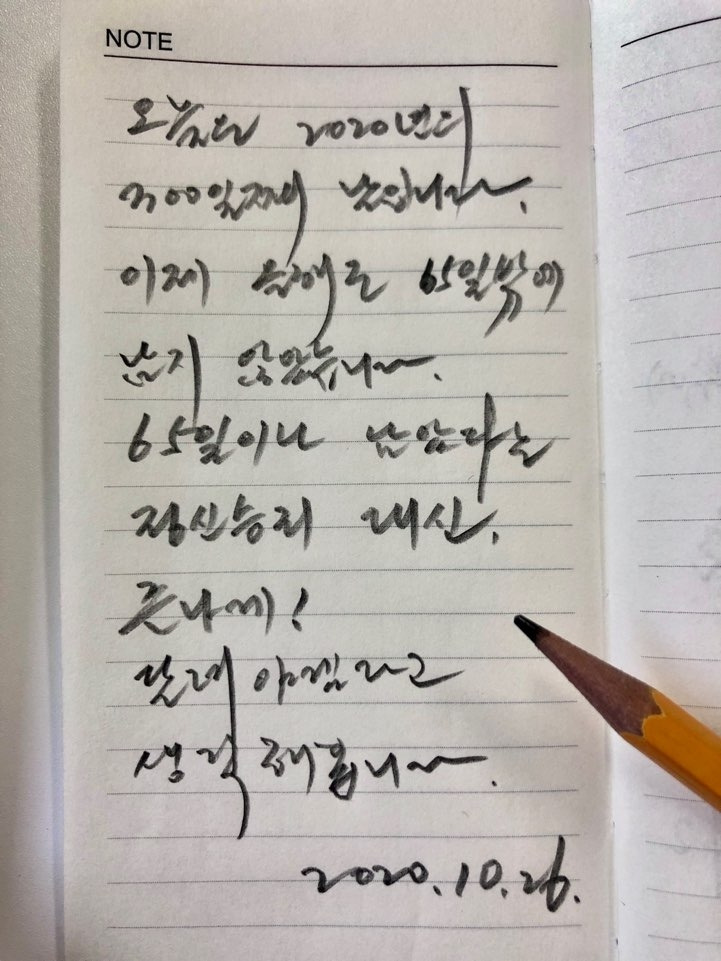 NOTE
오늘은 2020년의
300일째 날입니다.
이제 올해도 65일밖에
남지 않았습니다.
65일이나 남았다는
정신승리 대신,
존나게!
달려야겠다고
생각해봅니다.
2020.10.26.